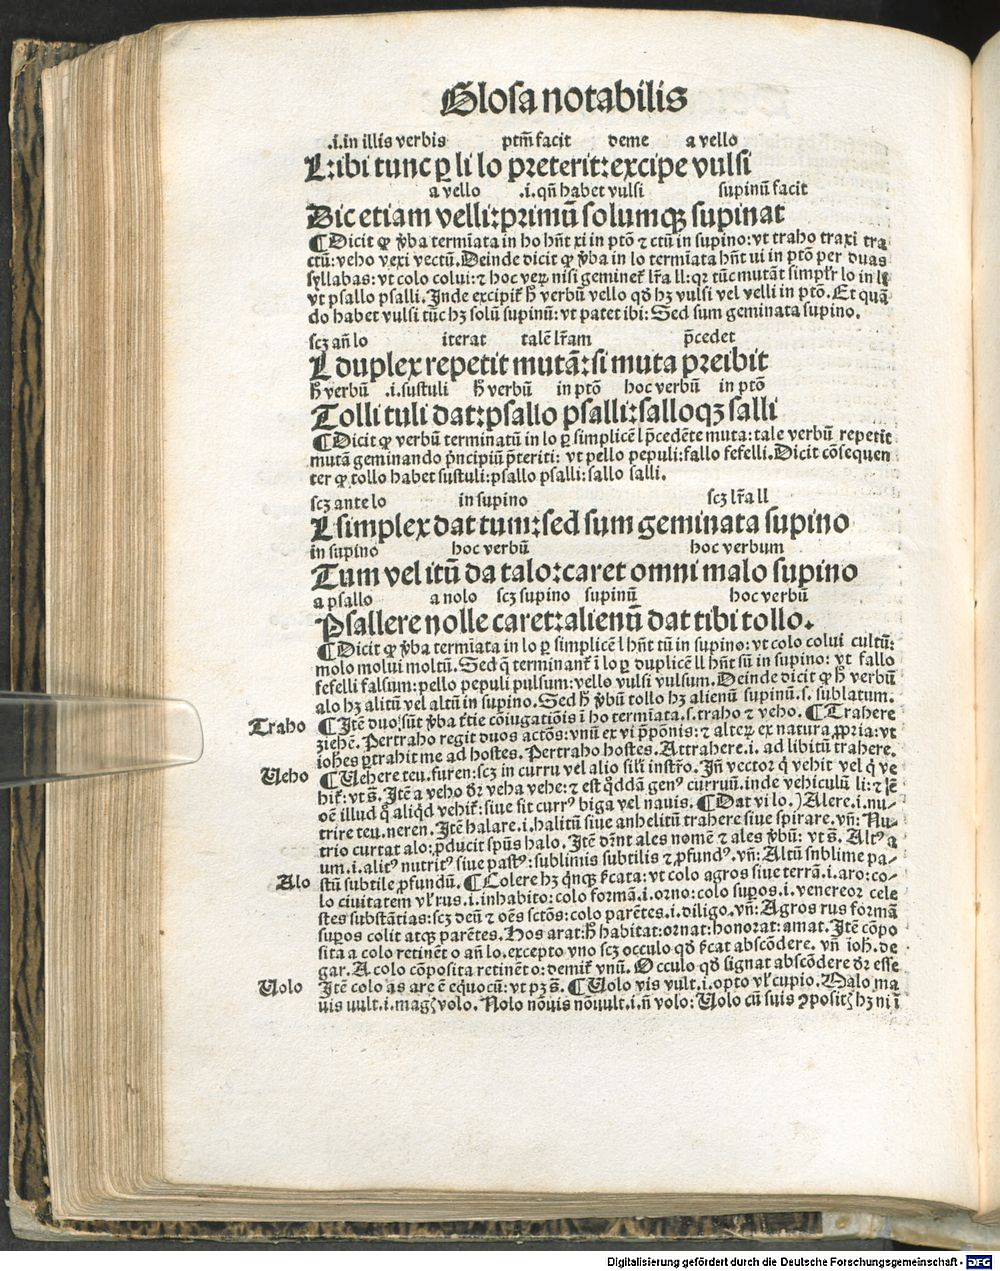 Glosa notabilis
.i. in illis verbis ptm̄ facit deme a vello
L:ibi tunc ꝑ li lo preterit:excipe vulsi
a vello .i. qñ habet vulsi supinū facit
Dic etiam velli:primū solumqꝫ supinat
¶Dicit ꝙ v̄ba termīata in ho hn̄t xi in ptō ⁊ ctū in supino: vt traho traxi tra
ctū: veho vexi vectū. Deinde dicit ꝙ v̄ba in lo termīata hn̄t ui in ptō per duas
syllabas: vt colo colui: ⁊ hoc veꝝ nisi geminet̄ lr̄a ll: qꝛ tūc mutāt simplr̄ lo in li
vt psallo psalli. Inde excipit̄ h̄ verbū vello qd̄ hꝫ vulsi vel velli in ptō. Et quā
do habet vulsi tūc hꝫ solū supinū: vt patet ibi: Sed sum geminata supino.
scꝫ an̄ lo iterat talē lr̄am p̄cedet
L duplex repetit mutā: si muta preibit
h̄ verbū .i. sustuli h̄ verbū in ptō hoc verbū in ptō
Tolli tuli dat: psallo psalli: salloqꝫ salli
¶Dicit ꝙ verbū terminatū in lo ꝑ simplicē l p̄cedēte muta: tale verbū repetit
mutā geminando pn̄cipiū p̄teriti: vt pello pepuli: fallo fefelli. Dicit cōsequen
ter ꝙ tollo habet sustuli: psallo psalli: sallo salli.
scꝫ ante lo in supino scꝫ lr̄a ll
L simplex dat tum: sed sum geminata supino
in supino hoc verbū hoc verbum
Tum vel itū da talo: caret omni malo supino
a psallo a nolo scꝫ supino supinū hoc verbū
Psallere nolle caret: alienū dat tibi tollo.
¶Dicit ꝙ v̄ba termīata in lo ꝑ simplicē l hn̄t tū in supino: vt colo colui cultū:
molo molui moltū. Sed q̄ terminant̄ ī lo ꝑ duplicē ll hn̄t sū in supino: vt fallo
fefelli falsum: pello pepuli pulsum: vello vulsi vulsum. Deinde dicit ꝙ h̄ verbū
alo hꝫ alitū vel altū in supino. Sed h̄ v̄bū tollo hꝫ alienū supinū .s. sublatum.
Traho ¶Itē duo sūt v̄ba t̄tie cōiugatiōis ī ho termīata .s. traho ⁊ veho. ¶Trahere
ziehē. Pertraho regit duos actōs: vnū ex vi p̄pōnis: ⁊ alteꝝ ex natura ꝓpria: vt
ioh̄es ꝑtrahit me ad hostes. Pertraho hostes. Attrahere .i. ad libitū trahere.
Ueho ¶Uehere teu. furen: scꝫ in curru vel alio sil̄i instr̄o. Jn̄ vectoꝛ q̄ vehit vel q̄ ve
hit̄: vt s̄. Itē a veho dr̄ veha vehe: ⁊ est qd̄dā genꝰ curruū. inde vehiculū li: ⁊
oē illud q̄ aliqd̄ vehit̄: siue sit currꝰ biga vel nauis. ¶Dat vi lo.) Alere .i. nu-
trire teu. neren. Itē halare .i. halitū siue anhelitū trahere siue spirare. vn̄: Nu-
trio curtat alo: ꝓducit spūs halo. Itē dr̄nt ales nomē ⁊ ales v̄bū: vt s̄. Altꝰ a
um .i. alitꝰ nutritꝰ siue pastꝰ: sublimis subtilis ⁊ ꝓfundꝰ. vn̄: Altū snblime pa-
Alo stū subtile ꝓfundū. ¶Colere hꝫ qn̄qꝫ s̄cata: vt colo agros siue terrā .i. aro: co-
lo ciuitatem vl̄ rus .i. inhabito: colo formā .i. orno: colo suꝑos .i. venereor cele
stes substātias: scꝫ deū ⁊ oēs sctōs: colo parētes .i. diligo. vn̄: Agros rus formā
suꝑos colit atqꝫ parētes. Hos arat: h̄ habitat: ornat: honorat: amat. Itē cōpo
sita a colo retinēt o an̄ lo. excepto vno scꝫ occulo qd̄ s̄cat abscōdere. vn̄ ioh̄. de
gar. A colo cōposita retinēt o: demit̄ vnū. Occulo qd̄ signat abscōdere dr̄ esse
Uolo Itē colo as are ē equocū: vt pꝫ s̄. ¶Uolo vis vult .i. opto vl̄ cupio. Malo ma
uis uult .i. magꝭ volo. Nolo nōuis nōuult .i. n̄ volo: Uolo cū suis ꝯpositꝭ hꝫ ni ī
Digitalisierung gefördert durch die Deutsche Forschungsgemeinschaft - DFG